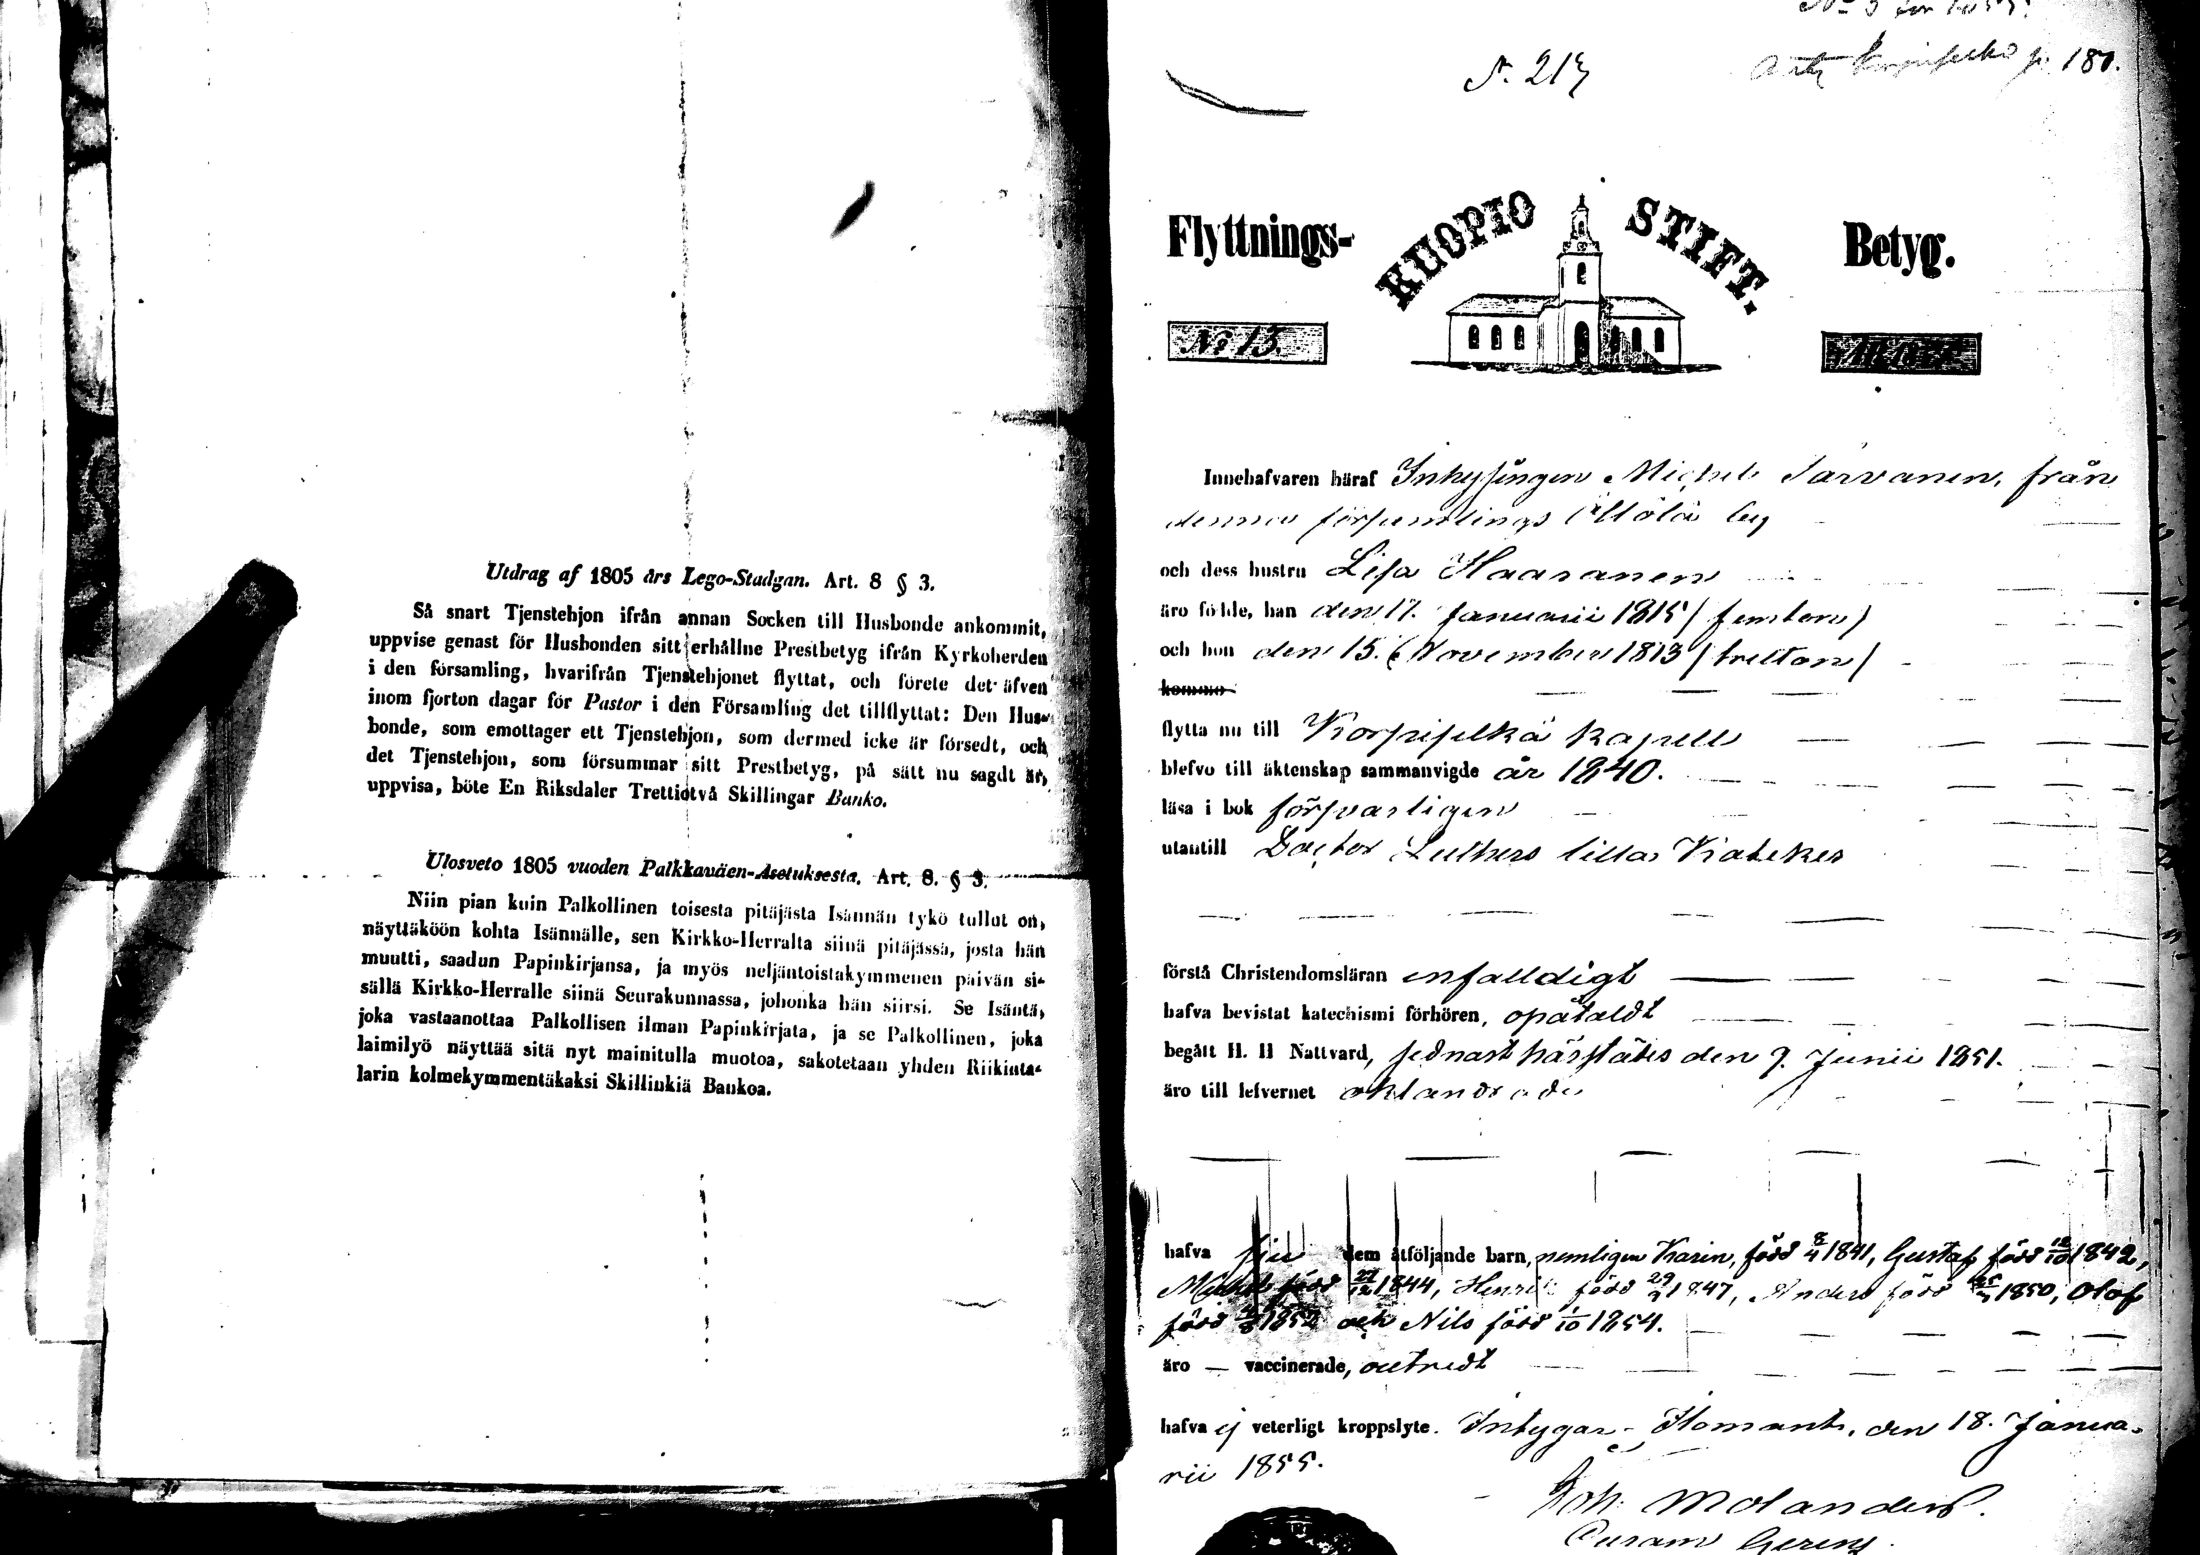 Utdrag af 1805 års Lego-Stadgan. Art. 8 § 3.
Så snart Tjenstehjon ifrån annan Socken till Husbonde ankommit,
uppvise genast för Husbonden sitt erhållne Prestbetyg ifrån Kyrkoherden
i den församling, hvarifrån Tjenstehjonet flyttat, och förete det äfven
inom fjorton dagar för Pastor i den Församling det tillflyttat: Den Hus-
bonde, som emottager ett Tjenstehjon, som dermed icke är försedt, och
det Tjenstehjon, som försummar sitt Prestbetyg, på sätt nu sagdt är,
uppvisa, böte En Riksdaler Trettiotvå Skillingar Banko.
Ulosveto 1805 vuoden Palkkaväen-Asetuksesta. Art. 8. § 3.
Niin pian kuin Palkollinen toisesta pitäjästa Isännän tykö tullut on,
näyttäköön kohta Isännälle, sen Kirkko-Herralta siinä pitäjässä, josta hän
muutti, saadun Papinkirjansa, ja myös neljäntoistakymmenen päivän si-
sällä Kirkko-Herralle siinä Seurakunnassa, johonka hän siirsi. Se Isäntä,
joka vastaanottaa Palkollisen ilman Papinkirjata, ja se Palkollinen, joka
laimilyö näyttää sitä nyt mainitulla muotoa, sakotetaan yhden Riikinta-
larin kolmekymmentäkaksi Skillinkiä Bankoa.
N. 213
Korpiselkä p. 180.
Flyttnings- KUOPIO STIFT. Betyg.
No 13.
Innehafvaren häraf Inhysingen Michel Tarvanen, från
denna församlings by
och dess hustru Lisa Haaranen
äro födde, han den 17. Januarii 1815 / femton /
och hon den 15. November 1813 / tretton /
komma
flytta nu till Korpiselkä kapell
blefvo till äktenskap sammanvigde år 1840.
läsa i bok försvarligen
utantill Doctor Luthers lilla Kateches
förstå Christendomsläran enfalldigt
hafva bevistat katechismi förhören, opåtaldt
begått H. H Nattvard, sednast härstädes den 9. Junii 1851.
äro till lefvernet oklandrade
hafva sju dem åtföljande barn, nemligen Karin, född 8/4 1841, Gustaf född 12/10 1842,
Michel född 27/12 1844, Henrik född 29/ 1847, Anders född 1850, Olof
född 1852 och Nils född 1/10 1854.
äro — vaccinerade, outredt
hafva ej veterligt kroppslyte. Intygar Ilomants, den 18. Janua-
rii 1855.
Joh. Molander.